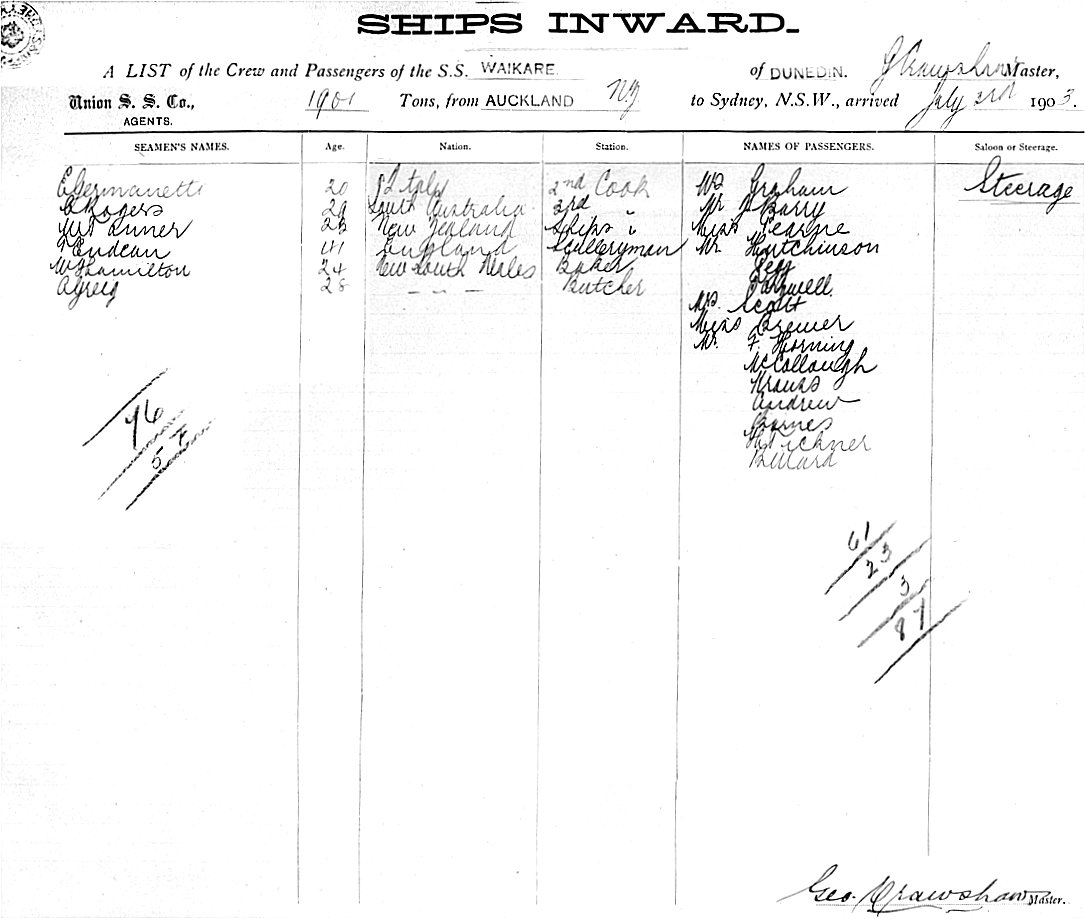 SHIPS INWARD.
A LIST of the Crew and Passengers of the S.S. WAIKARE of DUNEDIN. G Crawshaw Master,
Union S. S. Co., 1901 Tons, from AUCKLAND NZ to Sydney, N.S.W., arrived July 3rd 1903.
AGENTS.
SEAMEN'S NAMES. Age. Nation. Station. NAMES OF PASSENGERS. Saloon or Steerage.
20 Italy 2nd Cook Graham Steerage
Rogers 29 South Australia 3rd " Mr J Barry
23 New Zealand Ships " Miss Pearne
Endean 41 England Sculleryman Mr Hutchinson
Hamilton 24 New South Wales Baker
28 — — — Butcher
Mrs. Scott
Miss Brewer
Mr. F. Horning
McCollough
Krauss
Andrew
Barnes
76
57
61
23
3
87
Geo. Crawshaw Master.